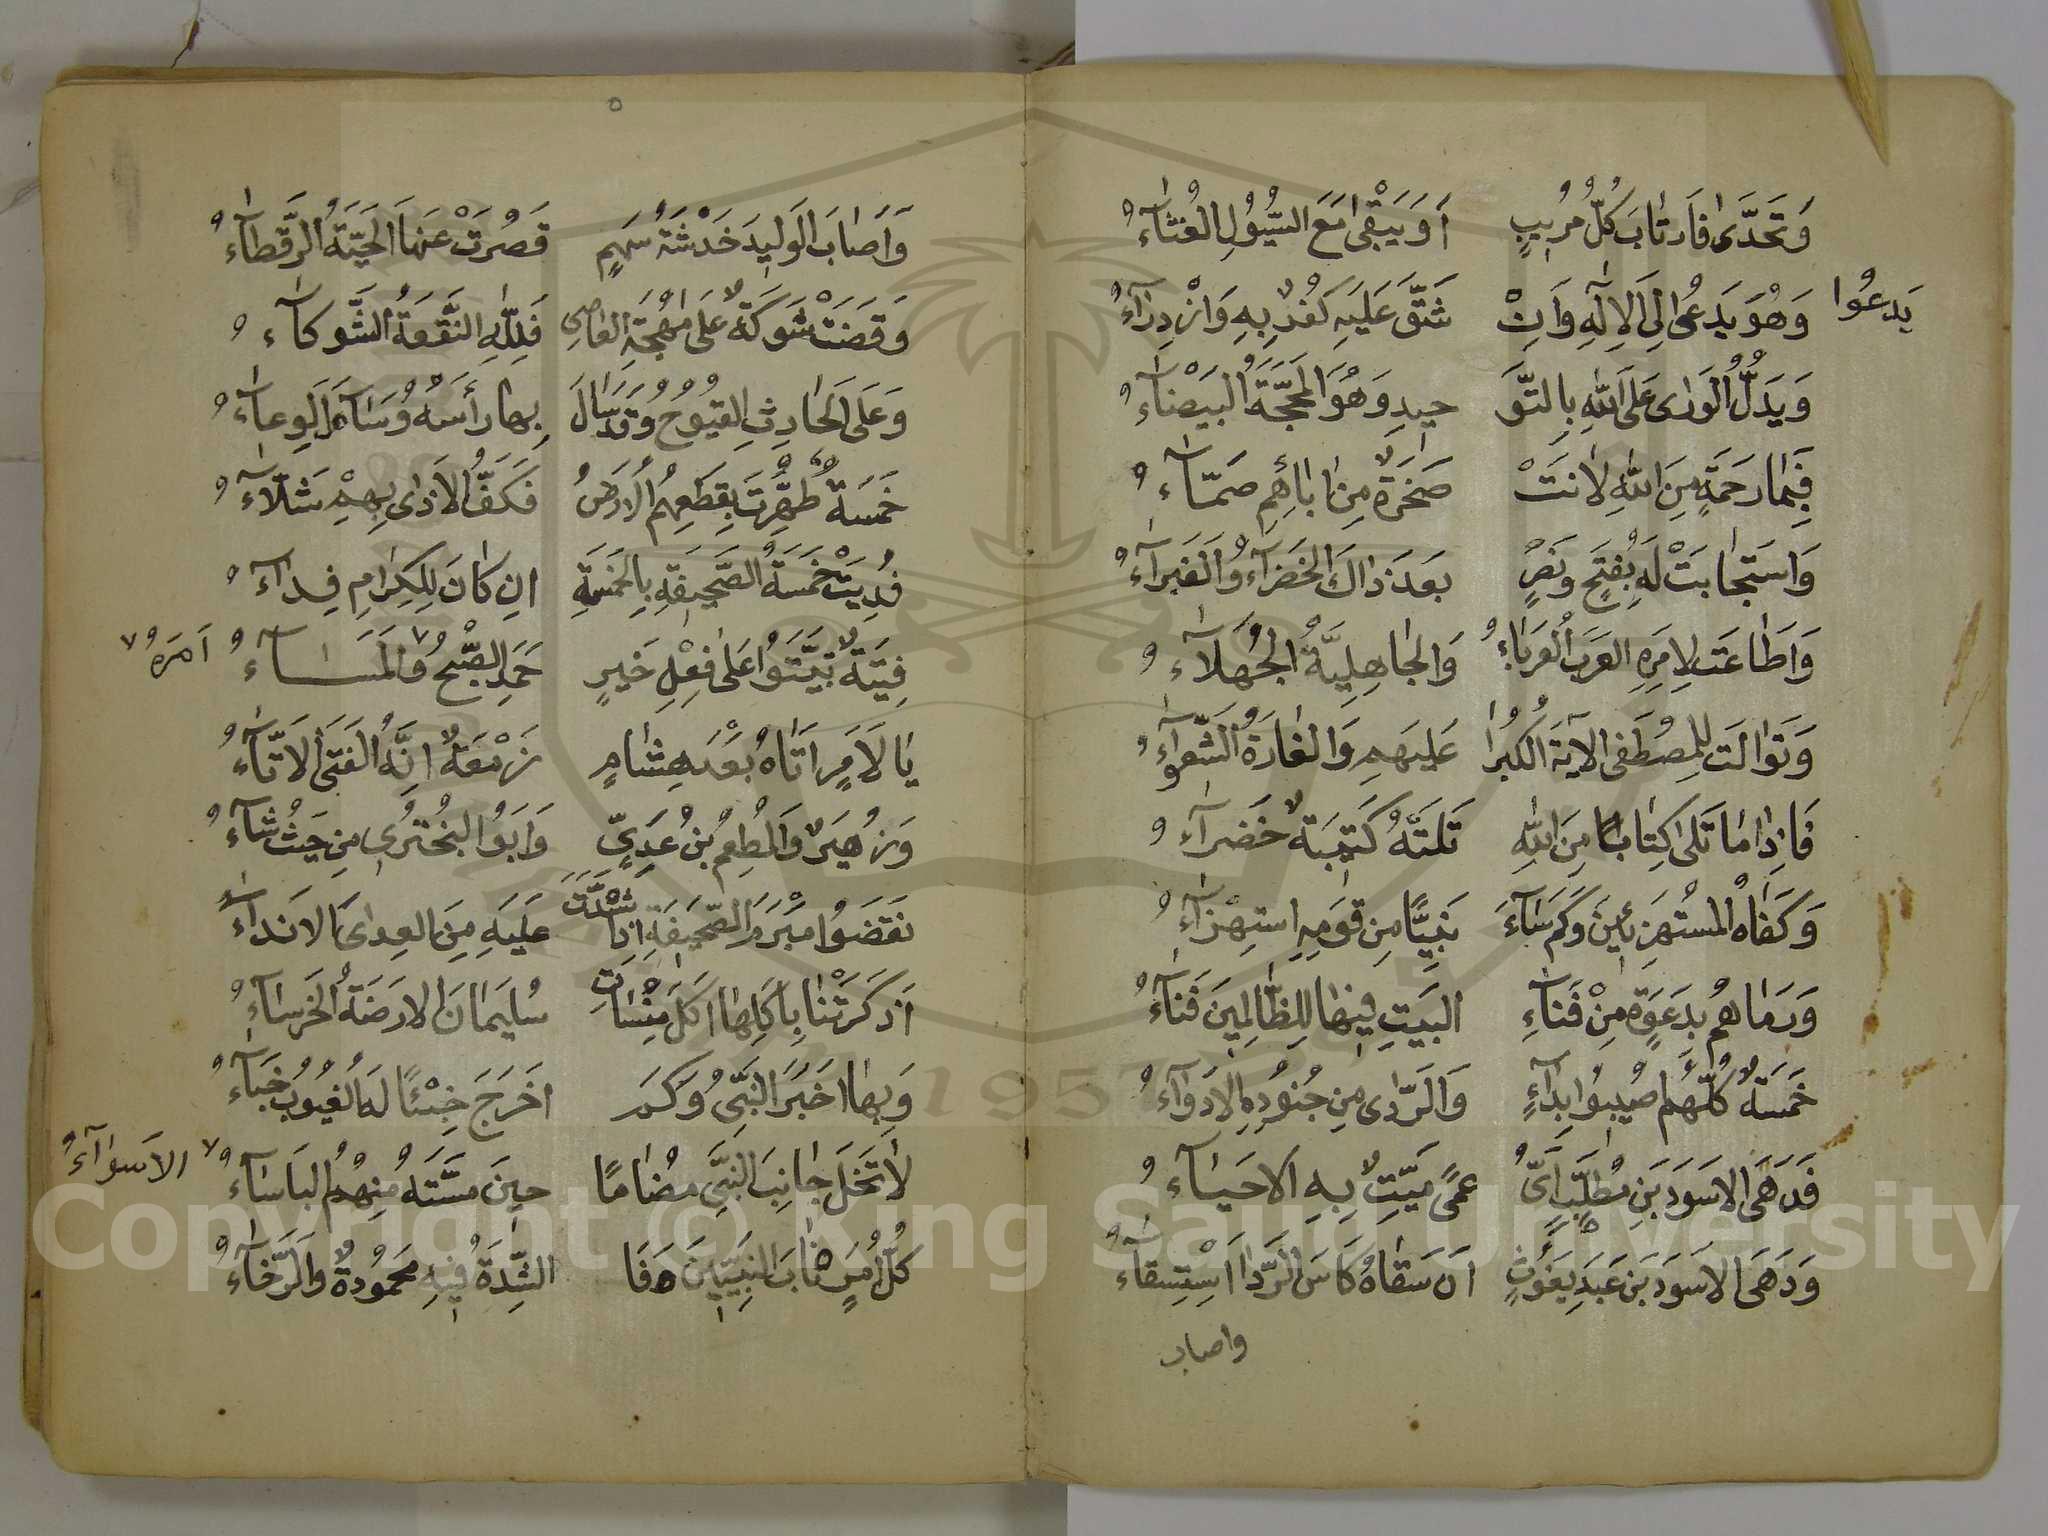 وَتَحَدَّى فَارتَابَ كُلُّ مُرِيبٍ أَوَيَبْقى مَعَ السُّيُولِ الغُثَآءُ
يَدعُوا
وَهُوَ يَدعُى اِلَى الاِلٰهِ وَاِنْ شَقَّ عَلَيهِ كُفرٌ بِهِ وَازْدِرَآءُ
وَيَدُلُّ الوَرٰى عَلَى اللّٰهِ بِالتَّو حيدِ وَهُوَ المَحَجَّةُ البَيْضَآءُ
فَبِمَا رَحمَةٍ مِنَ اللّٰهِ لَانَتْ صَخرَةٌ مِن اِبائِهِم صَمَّآءُ
وَاستَجَابَتْ لَهُ بِفَتحٍ وَنَصرٍ بَعدَ ذَاكَ الخَضرَآءُ وَالغَبرَآءُ
وَاَطَاعَت لِامرِهِ العَرَبُ العَربَاءُ وَالجَاهِلِيَّةُ الجُهَلآءُ
وَتَوَالَت لِلمُصطَفى الآيَةُ الكُبرَا عَلَيهِم وَالغَارَةُ الشَّعوَآءُ
فَاِذَا مَا تَلى كِتَابًا مِنَ اللّٰهِ تَلَتهُ كَتِيبَةٌ خَضرَآءُ
وَكَفَاهُ المُستَهزِئِينَ وَكَم سَآءَ نَبِيًّا مِن قَومِهِ استِهزَآءُ
وَرَمَاهُم بِدَعوَةٍ مِنْ فَنَآءِ البَيتِ فِيهَا لِلظَّالِمِينَ فَنَآءُ
خَمسَةٌ كُلُّهُم اُصِيبُوا بِدَآءٍ وَالرَّدٰى مِن جُنُودِهِ الاَدوَآءُ
فَدَهَى الاَسوَدَ بنَ مُطَّلِبٍ اَىُّ عَمًى مَيِّتٌ بِهِ الاَحيَآءُ
وَدَهَى الاَسوَدَ بنَ عَبدِ يَغُوثٍ اَن سَقَاهُ كَاسَ الرَّدَا اَستِسقَآءُ
واصاب
وَاَصَابَ الوَلِيدَ خَدْشَةُ سَهمٍ قَصُرَتْ عَنهَا الحَيَّةُ الرَّقطَآءُ
وَقَضَتْ شَوكَةٌ عَلى مُهجَةِ العَاصِى فَلِلّٰهِ النَّقعَةُ الشَّوكَآءُ
وَعَلَى الحَارِثِ القُيُوحُ وَقَد سَالَ بِهَا رَأسُهُ وَسَآءَ الوِعَآءُ
خَمسَةٌ طُهِّرَت بِقَطعِهِمُ الاَرضُ فَكَفُّ الاَذٰى بِهِمْ شَلّآءُ
فُدِيَتْ خَمسَةُ الصَّحِيفَةِ بِالخَمسَةِ اِن كَانَ لِلكِرَامِ فِدَآءُ
فِتيَةٌ بَيَّتُوا عَلى فِعْلِ خَيرٍ حَمِدَ الصُّبحُ وَالمَسَآءُ
اَمرَهُ
يَا لَاَمرٍ اَتَاهُ بَعدَ هِشَامٍ زَمْعَةٌ اِنَّهُ الفَتَى الاَتَّآءُ
وَزُهَيرٌ وَالمُطعِمُ بنُ عَدِىٍّ وَاَبُو البُختُرِى مِن حَيثُ شَآءُ
نَقَضُوا مُبرَمَ الصَّحِيفَةِ اِذ شَدَّت عَلَيهِ مِنَ العِدٰى الاَندَآءُ
اَذكَرَتْنَا بِاَكلِهَا اَكلَ مِنْسَاتِ سُلَيمَانَ الاَرضَةُ الخَرسَآءُ
وَبِهَا اَخبَرَ النَّبِىُّ وَكَم اَخرَجَ خِبئًا لَهُ الغُيُوبُ خَبَآءُ
لَاتَخَل جَانِبَ النَّبِىِّ مُضَامًا حِينَ مَسَّتهُ مِنهُمُ البَاسَآءُ
الاَسوَآءُ
كُلُّ اَمرٍ نَابَ النَّبِيِّينَ فَا الشِّدَةُ فِيهِ مَحمُودَةٌ وَالرَّخَآءُ
Copyright © King Saud University
1957